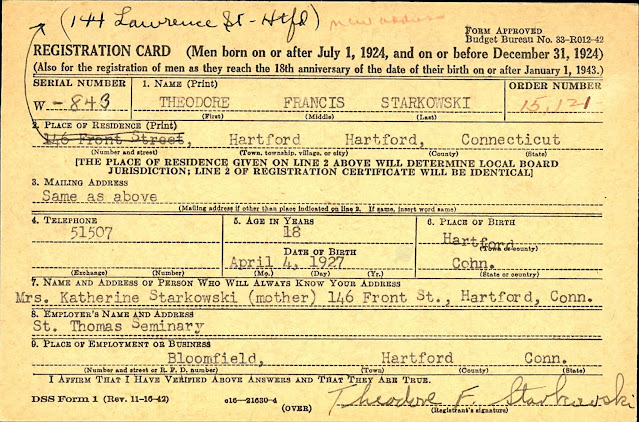 (144 Lawrence St - Htfd) new address
FORM APPROVED
Budget Bureau No. 33-R012-42
REGISTRATION CARD (Men born on or after July 1, 1924, and on or before December 31, 1924)
(Also for the registration of men as they reach the 18th anniversary of the date of their birth on or after January 1, 1943.)
SERIAL NUMBER 1. NAME (Print) ORDER NUMBER
W -843 THEODORE FRANCIS STARKOWSKI 15,121
(First) (Middle) (Last)
2. PLACE OF RESIDENCE (Print)
146 Front Street, Hartford Hartford, Connecticut
(Number and street) (Town, township, village, or city) (County) (State)
[THE PLACE OF RESIDENCE GIVEN ON LINE 2 ABOVE WILL DETERMINE LOCAL BOARD
JURISDICTION; LINE 2 OF REGISTRATION CERTIFICATE WILL BE IDENTICAL]
3. MAILING ADDRESS
Same as above
(Mailing address if other than place indicated on line 2. If same, insert word same)
4. TELEPHONE 5. AGE IN YEARS 6. PLACE OF BIRTH
51507 18 Hartford
(Town or county)
DATE OF BIRTH
April 4, 1927 Conn.
(Exchange) (Number) (Mo.) (Day) (Yr.) (State or country)
7. NAME AND ADDRESS OF PERSON WHO WILL ALWAYS KNOW YOUR ADDRESS
Mrs. Katherine Starkowski (mother) 146 Front St., Hartford, Conn.
8. EMPLOYER'S NAME AND ADDRESS
St. Thomas Seminary
9. PLACE OF EMPLOYMENT OR BUSINESS
Bloomfield, Hartford Conn.
(Number and street or R. F. D. number) (Town) (County) (State)
I AFFIRM THAT I HAVE VERIFIED ABOVE ANSWERS AND THAT THEY ARE TRUE.
DSS Form 1 (Rev. 11-16-42) c16-21630-4 Theodore F. Starkowski
(OVER) (Registrant's signature)